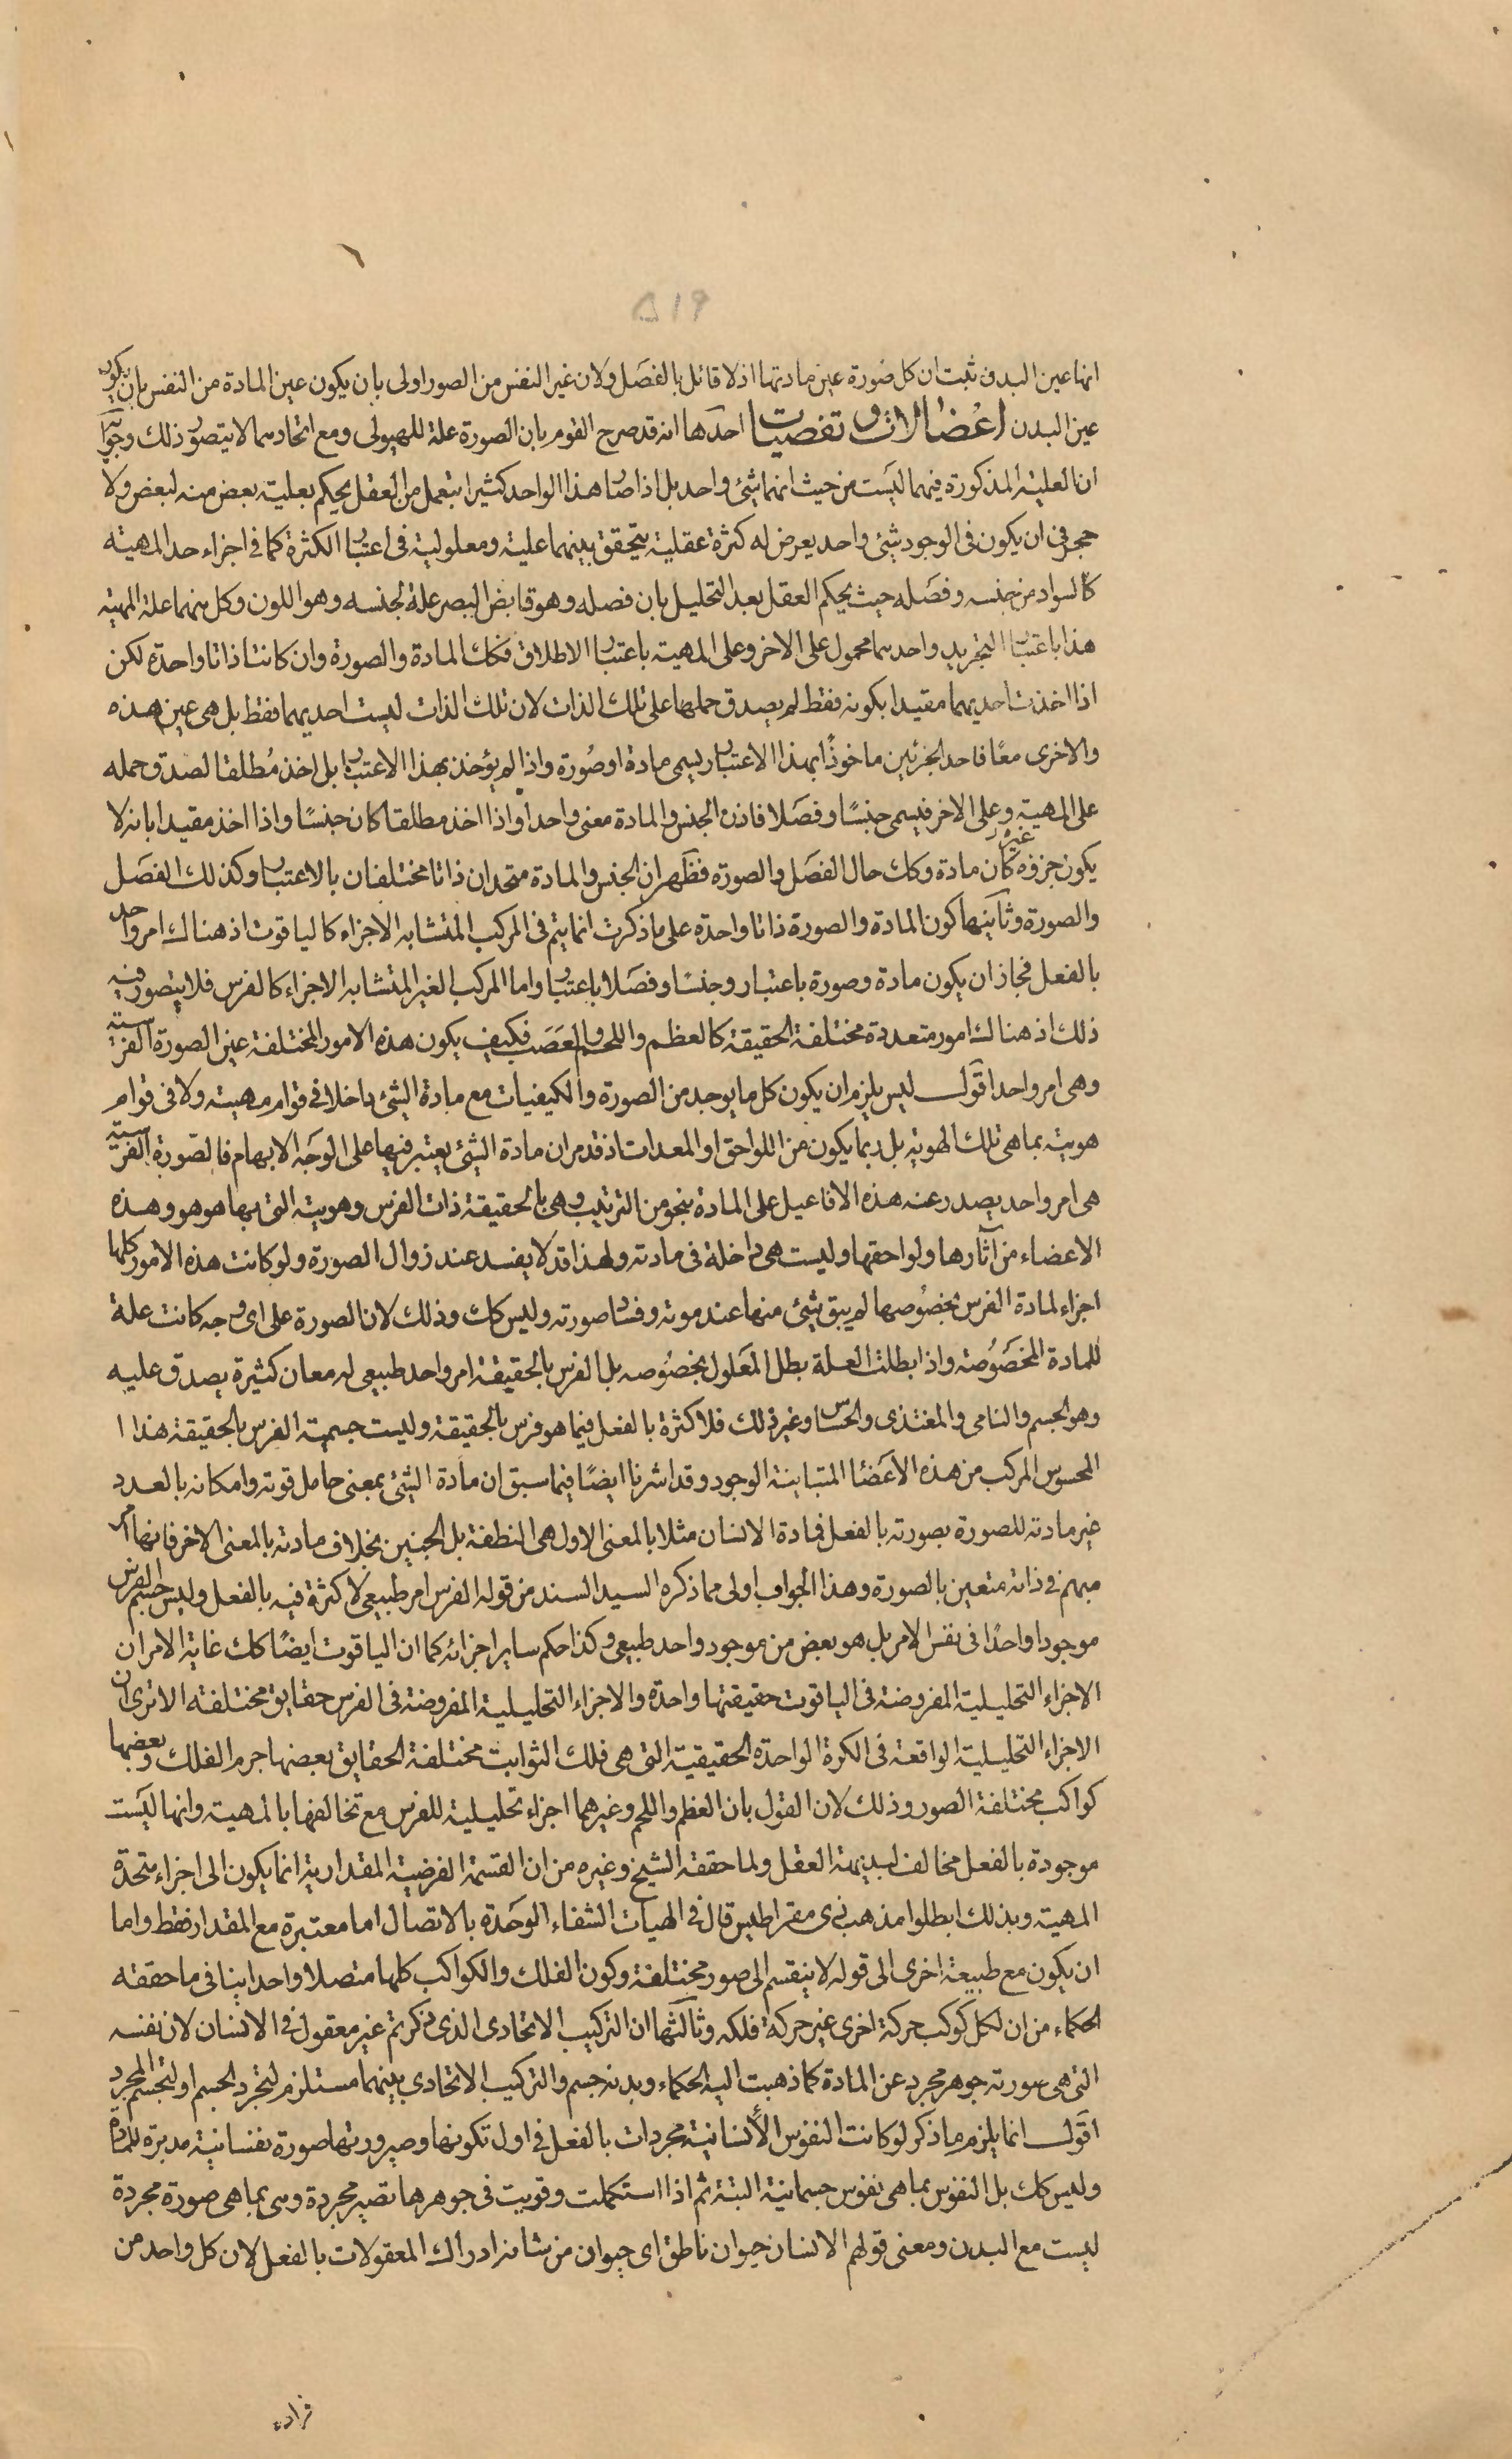 ۵۱۹
انها عين البدن ثبت ان كل صورة عين مادتها اذ لا قائل بالفصل ولان غير النفس من الصور اولى بان يكون عين المادة من النفس بان يكون
عين البدن اعضالات وتفصيات احدها انه قد صرح القوم بان الصورة علة للهيولى ومع اتحادهما لا يتصور ذلك وجوابه
ان العلية المذكورة فيهما ليست من حيث انهما شئ واحد بل اذا صار هذا الواحد كثيرا بتعمل من العقل يحكم بعلية بعض منه لبعض ولا
حجر فى ان يكون فى الوجود شئ واحد يعرض له كثرة عقلية يتحقق بينهما علية ومعلولية فى اعتبار الكثرة كما فى اجزاء حد المهية
كالسواد من جنسه وفصله حيث يحكم العقل بعد التحليل بان فصله وهو قابض البصر علة لجنسه وهو اللون وكل منهما علة المهية
هذا باعتبار التجريد واحدهما محمول على الاخر وعلى المهية باعتبار الاطلاق فكك المادة والصورة وان كانتا ذاتا واحدة لكن
اذا اخذت احديهما مقيدا بكونه فقط لم يصدق حملها على تلك الذات لان تلك الذات ليست احديهما فقط بل هى عين هذه
والاخرى معًا فاحد الجزئين ماخوذًا بهذا الاعتبار يسمى مادة او صورة واذا لم يؤخذ بهذا الاعتبار بل اخذ مُطلقا لصدق حمله
على المهية وعلى الاخر فيسمى جنسًا وفصلا فاذن الجنس والمادة معنى واحد اواذا اخذ مطلقا كان جنسًا واذا اخذ مقيدا بانه لا
يكون جزؤه غيره كان مادة وكك حال الفصل والصورة فظهر ان الجنس والمادة متحدان ذاتا مختلفان بالاعتبار وكذلك الفصل
والصورة وثانيها كون المادة والصورة ذاتا واحدة على ما ذكرت انما يتم فى المركب المتشابه الاجزاء كالياقوت اذ هناك امر واحد
بالفعل فجاز ان يكون مادة وصورة باعتبار وجنسًا وفصلا باعتبار واما المركب الغير المتشابه الاجزاء كالفرس فلا يتصور فيه
ذلك اذ هناك امور متعددة مختلفة الحقيقة كالعظم واللحم والعصب فكيف يكون هذه الامور المختلفة عين الصورة الفرسية
وهى امر واحد اقول ليس يلزم ان يكون كل ما يوجد من الصورة والكيفيات مع مادة الشئ داخلا فى قوام مهيته ولا فى قوام
هويته بما هى تلك الهوية بل ربما يكون من اللواحق او المعدات اذ قد مر ان مادة الشئ يعتبر فيها على الوجه الابهام فالصورة الفرسية
هى امر واحد يصدر عنه هذه الافاعيل على المادة بنحو من الترتيب وهى بالحقيقة ذات الفرس وهويته التى بها هو هو وهذه
الاعضاء من آثارها ولواحقها وليست هى داخلة فى مادته ولهذا قد لا يفسد عند زوال الصورة ولو كانت هذه الامور كلها
اجزاء لمادة الفرس بخصوصها لم يبق شئ منها عند موته وفساد صورته وليس كك وذلك لان الصورة على اى وجه كانت علة
للمادة المخصوصة واذا بطلت العلة بطل المعلول بخصوصه بل الفرس بالحقيقة امر واحد طبيعى له معان كثيرة يصدق عليه
وهو الجسم والنامى والمغتذى والحساس وغير ذلك فلا كثرة بالفعل فيما هو فرس بالحقيقة وليست جسمية الفرس بالحقيقة هذا ا
المحسوس المركب من هذه الاعضاء المتباينة الوجود وقد اشرنا ايضًا فيما سبق ان مادة الشئ بمعنى حامل قوته وامكانه بالعدد
غير مادته للصورة بصورته بالفعل فمادة الانسان مثلا بالمعنى الاول هى النطفة بل الجنين بخلاف مادته بالمعنى الاخر فانها امر
مبهم فى ذاته متعين بالصورة وهذا الجواب اولى مما ذكره السيد السند من قوله الفرس امر طبيعى لا كثرة فيه بالفعل وليس جسم الفرس
موجودا واحدًا فى نفس الامر بل هو بعض من موجود واحد طبيعى وكذا حكم ساير اجزائه كما ان الياقوت ايضًا كك غاية الامر ان
الاجزاء التحليلية المفروضة فى الياقوت حقيقتها واحدة والاجزاء التحليلية المفروضة فى الفرس حقايق مختلفة الا ترى ان
الاجزاء التحليلية الواقعة فى الكرة الواحدة الحقيقية التى هى فلك الثوابت مختلفة الحقايق بعضها جرم الفلك وبعضها
كواكب مختلفة الصور وذلك لان القول بان العظم واللحم وغيرهما اجزاء تحليلية للفرس مع تخالفها بالمهية وانها ليست
موجودة بالفعل مخالف لبديهة العقل ولما حققه الشيخ وغيره من ان القسمة الفرضية المقدارية انما يكون الى اجزاء متحدة
المهية وبذلك ابطلوا مذهب ذى مقراطيس قال فى الهيات الشفاء الوحدة بالاتصال اما معتبرة مع المقدار فقط واما
ان يكون مع طبيعة اخرى الى قوله لا ينقسم الى صور مختلفة وكون الفلك والكواكب كلها متصلا واحدا ينافى ما حققه
الحكماء من ان لكل كوكب حركة اخرى غير حركة فلكه وثالثها ان التركيب الاتحادى الذى ذكرتم غير معقول فى الانسان لان نفسه
التى هى صورته جوهر مجرد عن المادة كما ذهبت اليه الحكماء وبدنه جسم والتركيب الاتحادى بينهما مستلزم لتجرد الجسم او لتجسم المجرد
اقول انما يلزم ما ذكر لو كانت النفوس الأنسانية مجردات بالفعل فى اول تكونها وصيرورتها صورة نفسانية مدبرة للمادة
وليس كك بل النفوس بما هى نفوس جسمانية البتة ثم اذا استكملت وقويت فى جوهرها تصير مجردة وهى بما هى صورة مجردة
ليست مع البدن ومعنى قولهم الانسان حيوان ناطق اى حيوان من شانه ادراك المعقولات بالفعل لان كل واحد من